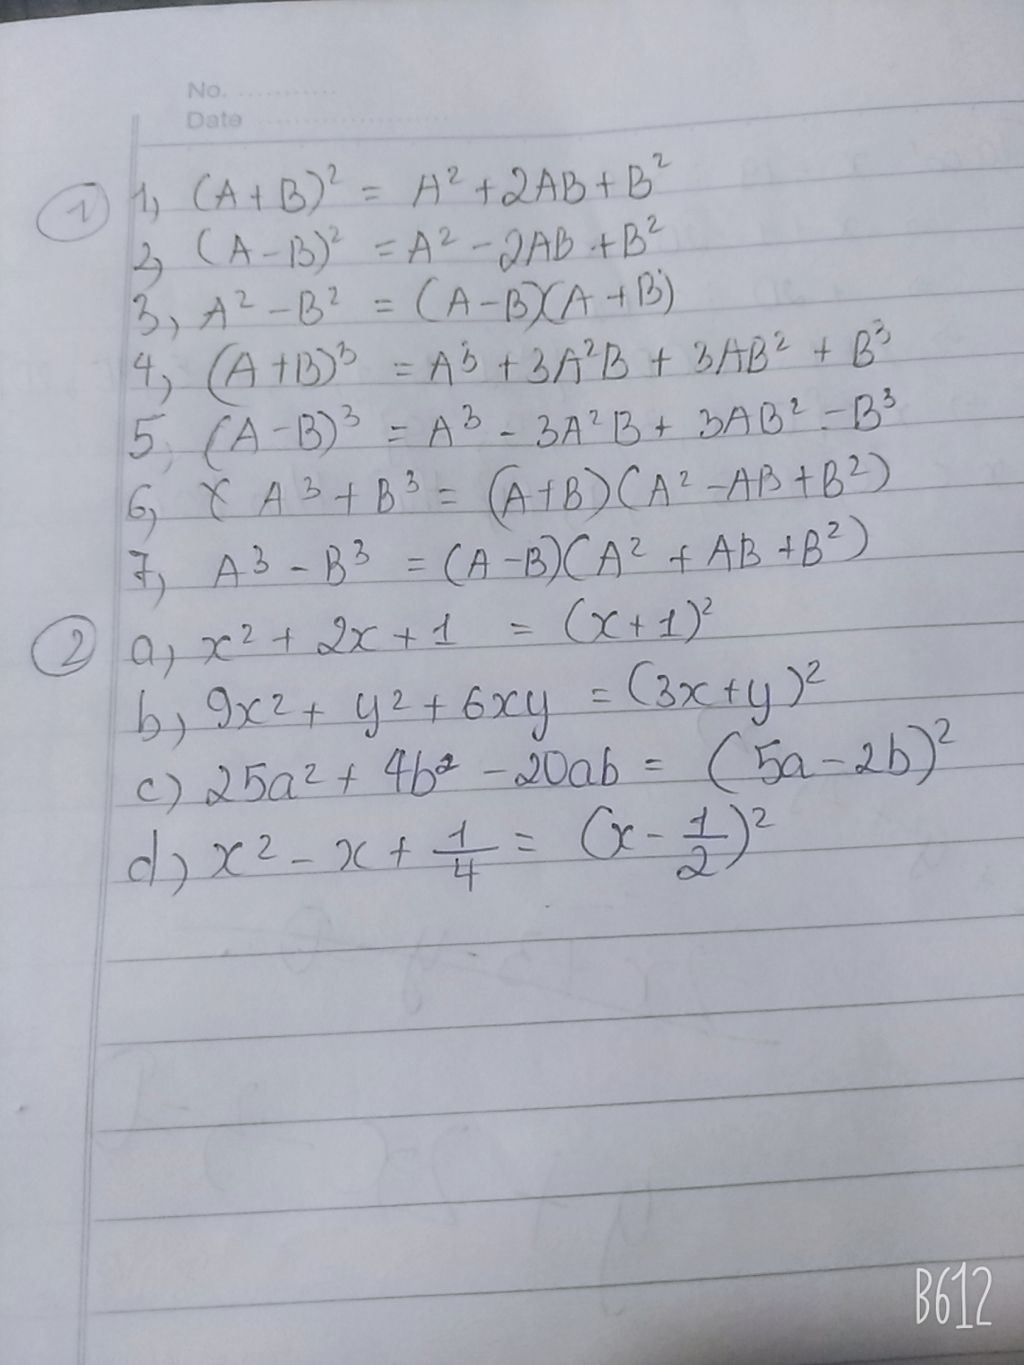 No. ............
Date ......................
① 1, (A+B)² = A² + 2AB + B²
2, (A-B)² = A² - 2AB + B²
3, A² - B² = (A-B)(A+B)
4, (A+B)³ = A³ + 3A²B + 3AB² + B³
5, (A-B)³ = A³ - 3A²B + 3AB² - B³
6, A³ + B³ = (A+B)(A² - AB + B²)
7, A³ - B³ = (A-B)(A² + AB + B²)
② a, x² + 2x + 1 = (x+1)²
b, 9x² + y² + 6xy = (3x+y)²
c) 25a² + 4b² - 20ab = (5a-2b)²
d, x² - x + 1/4 = (x - 1/2)²
B612